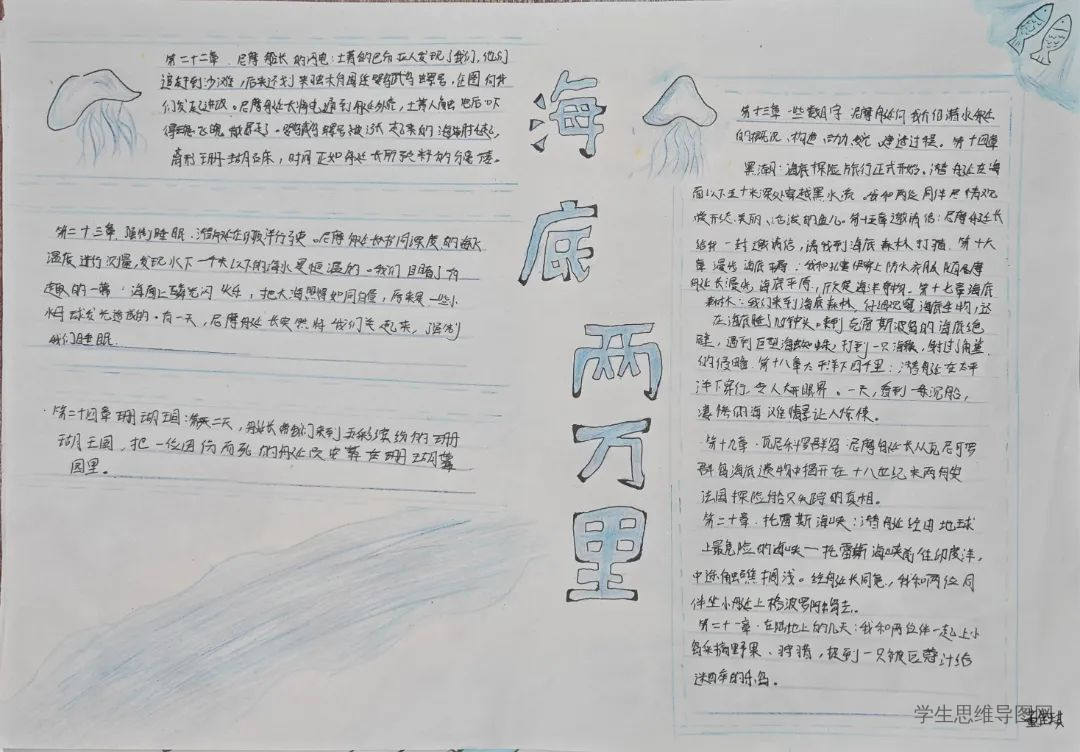 海底两万里
第十三章 一些数字 尼摩船长向我们潜水艇
的概况、构造、动力、建造过程。第十四章
黑潮:海底探险旅行正式开始。潜艇在海
面以下五十米深处穿越黑水流。我和两位同伴尽情观
美丽、活泼的鱼儿。第十五章邀请信:尼摩艇长
给我一封邀请信,请我到海底森林打猎。第十六
章漫步海底平原:我和
艇长漫步海底平原,欣赏海洋。第十七章海底
森林:我们来到海底森林,海底生物,还
在海底睡了。克雷斯波岛的海底绝
壁,遇到巨型海蜘蛛,打到一只海獭,
的侵略。第十八章太平洋下四千里:潜艇在太平
洋下穿行,令人大开眼界。一天,看到一条沉船,
凄惨的海难情景让人惊悚。
第十九章·瓦尼科罗群岛 尼摩艇长从瓦尼可罗
群岛海底遗物中揭开在十八世纪末两艘
法国探险船只失踪的真相。
第二十章·托雷斯海峡:潜艇经由地球
上最危险的海峡—托雷斯海峡前往印度洋,
中途触礁搁浅。经艇长同意,我和两位同
伴坐小艇上格波罗阿岛去。
第二十一章·在陆地上的几天:我和两位伴一起上小
岛采摘野果、狩猎,捉到一只被豆蔻汁给
迷醉的乐鸟。
第二十二章 尼摩船长的闪电:土著的巴布亚人发现了我们,他们
追赶到沙滩,后来还到来强大舰队鹦鹉螺号,企图向我
们发起进攻。尼摩艇长将电通到艇外壳,土著人触电后吓
得魂飞魄散。鹦鹉螺号被涨起来的海潮托起,
离开珊瑚石床,时间正如艇长所预料的分毫不差。
第二十三章 强制睡眠:潜艇在印度洋行驶。尼摩艇长对不同深度的海水
温度进行测量,发现水下一千米以下的海水是恒温的。我们目睹了有
趣的一幕:海面上磷光闪烁,把大海照得如同白昼,原来是一些小
球发光造成的。有一天,尼摩艇长突然将我们关起来,强制
我们睡眠
第二十四章珊瑚王国:第二天,艇长带我们来到五彩缤纷的珊
瑚王国,把一位因伤而死的艇员安葬在珊瑚墓
园里。
学生思维导图网